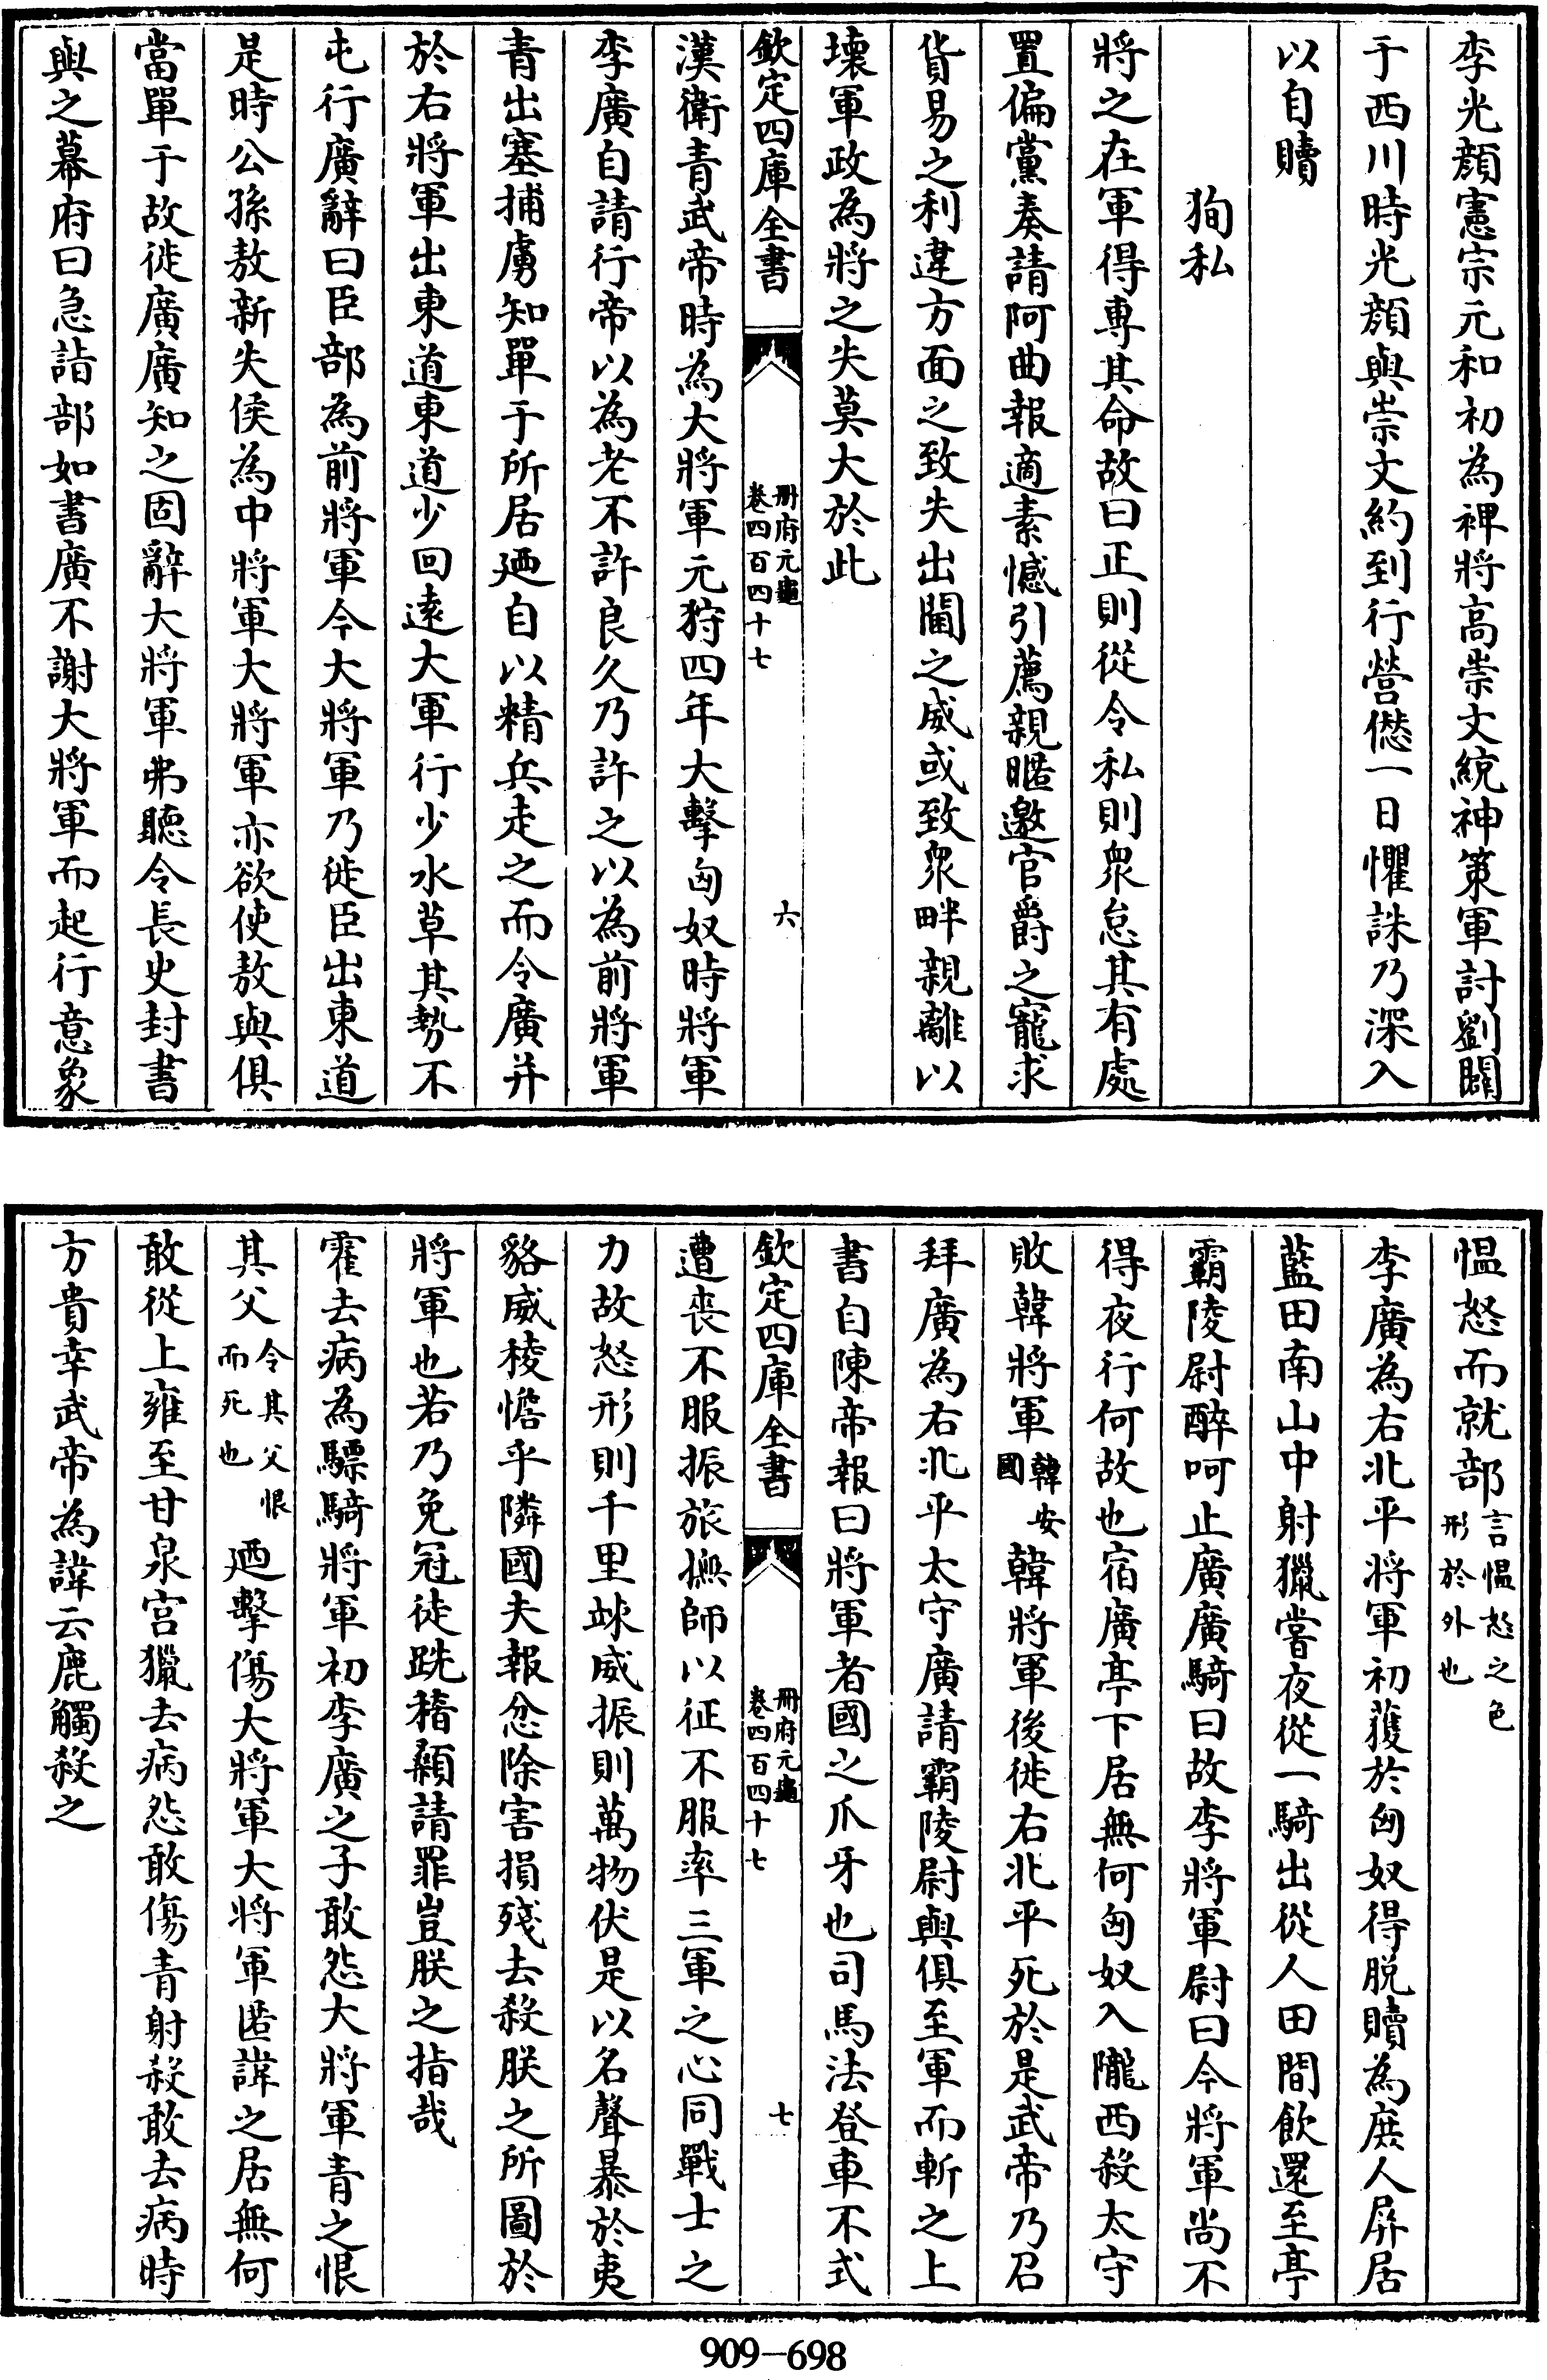 李光顔憲宗元和初為裨將高崇文統神策軍討劉闢
于西川時光顔與崇文約到行營愆一日懼誅乃深入
以自贖
狥私
將之在軍得專其命故曰正則從令私則衆怠其有處
置偏黨奏請阿曲報適素憾引薦親暱邀官爵之寵求
貨易之利違方面之致失出閫之威或致衆畔親離以
壊軍政為將之失莫大於此
欽定四庫全書
冊府元龜
卷四百四十七
六
漢衛青武帝時為大將軍元狩四年大擊匈奴時將軍
李廣自請行帝以為老不許良久乃許之以為前將軍
青出塞捕虜知單于所居廼自以精兵走之而令廣并
於右將軍出東道東道少回逺大軍行少水草其勢不
屯行廣辭曰臣部為前將軍今大將軍乃徙臣出東道
是時公孫敖新失侯為中將軍大將軍亦欲使敖與俱
當單于故徙廣廣知之固辭大將軍弗聽令長史封書
與之幕府曰急詣部如書廣不謝大將軍而起行意象
愠怒而就部言愠怒之色形於外也
李廣為右北平將軍初獲於匈奴得脱贖為庶人屏居
藍田南山中射獵嘗夜從一騎出從人田間飲還至亭
霸陵尉醉呵止廣廣騎曰故李將軍尉曰今將軍尚不
得夜行何故也宿廣亭下居無何匈奴入隴西殺太守
敗韓將軍韓安國韓將軍後徙右北平死於是武帝乃召
拜廣為右北平太守廣請霸陵尉與俱至軍而斬之上
書自陳帝報曰將軍者國之爪牙也司馬法登車不式
欽定四庫全書
冊府元龜
卷四百四十七
七
遭喪不服振旅撫師以征不服率三軍之心同戰士之
力故怒形則千里竦威振則萬物伏是以名聲暴於夷
貉威稜憺乎隣國夫報忿除害損殘去殺朕之所圖於
將軍也若乃免冠徒跣稽顙請罪豈朕之指哉
霍去病為驃騎將軍初李廣之子敢怨大將軍青之恨
其父令其父恨而死也廼擊傷大將軍大將軍匿諱之居無何
敢從上雍至甘泉宮獵去病怨敢傷青射殺敢去病時
方貴幸武帝為諱云鹿觸殺之
909-698